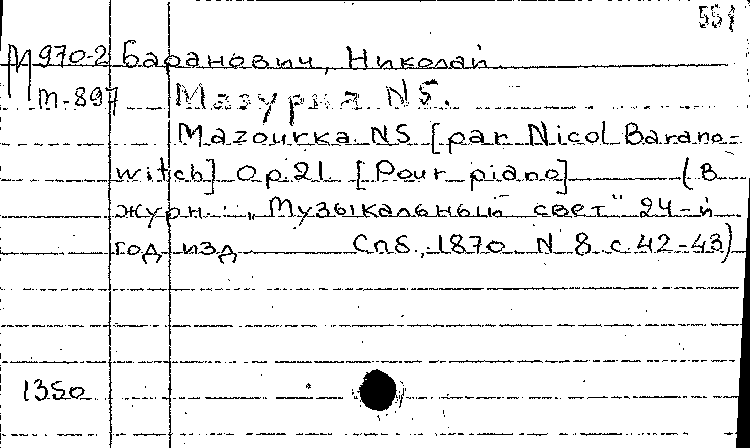 551
М 970-2 Баранович, Николай
М-897 Мазурка N5.
Mazourka N5 [par Nicol Barano=
witch] Op.21. [Pour piano] (В
журн.: „Музыкальный свет" 24-й
год изд Спб., 1870. N 8. с.42-43)
1350